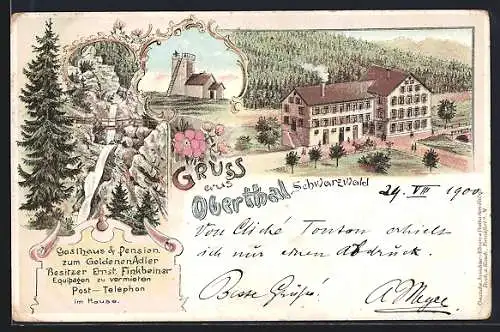 Gruss
aus
Oberthal Schwarzwald
24. VIII 1900.
Von Cliché Tonton erhielt
ich nur einen Abdruck.
Beste Grüße!
A. Meyer
Gasthaus & Pension
zum Goldenen Adler
Besitzer Ernst Finkbeiner
Equipagen zu vermieten
Post-Telephon
im Hause.